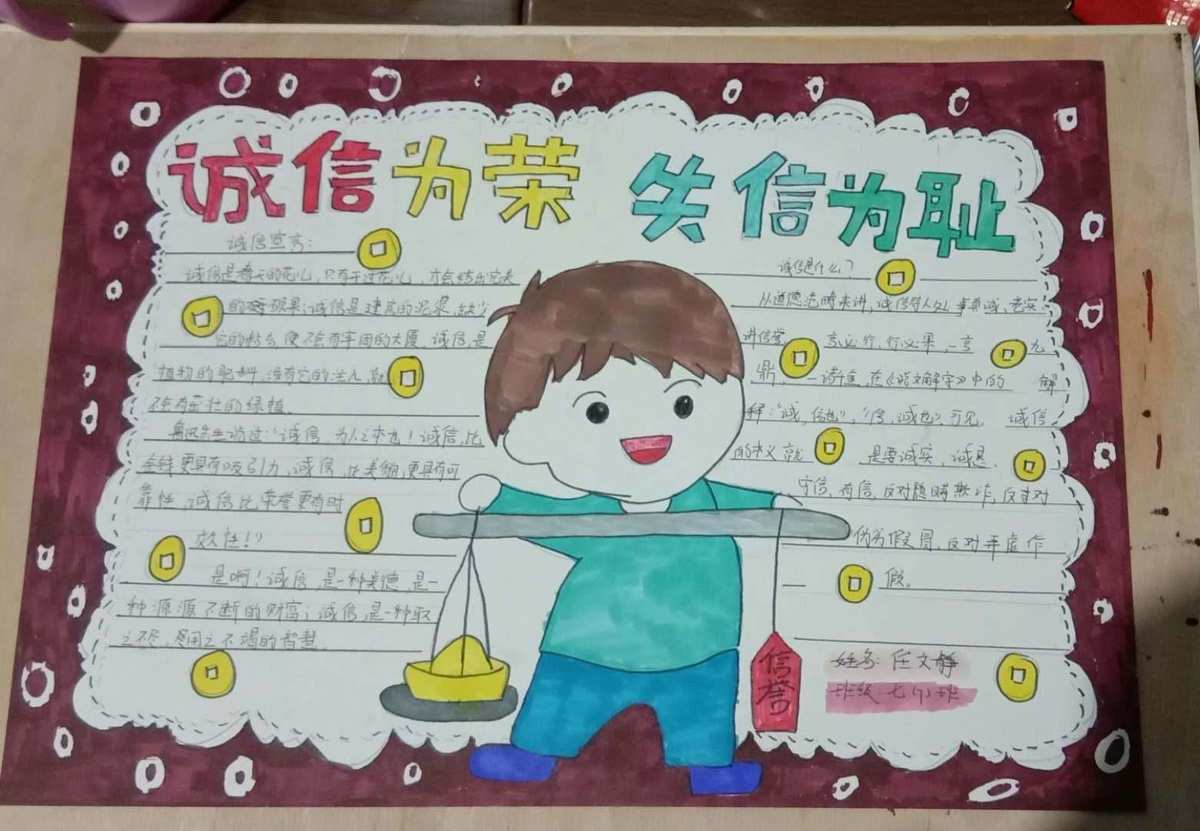 诚信为荣 失信为耻
诚信宣言:
诚信是春天的花儿,只有开过花儿,才会结出完美
的硕果;诚信是建房的泥浆,缺少
它的粘合,便不会有牢固的大厦,诚信是
植物的肥料,没有它的
不会有茁壮的绿植。
鲁迅先生说过:“诚信,为人之本也!诚信,比
金钱更具有吸引力,诚信,比美貌,更具有可
靠性,诚信比荣誉更有时
效性!”
是啊!诚信,是一种美德,是一
种源源不断的财富;诚信,是一种取
之不尽,用之不竭的智慧
诚信是什么?
从道德范畴来讲,诚信待人处事真诚、老实、
讲信誉 言必行、行必果,一言 九
鼎,一诺千金,在《说文解字》中的 解
释:“诚,信也”,“信,诚也”,可见,诚信
的本义就 是要诚实、诚恳、
守信、有信,反对隐瞒欺诈,反对
伪劣假冒,反对弄虚作
假。
信誉
姓名:任文静
班级 七(1)班